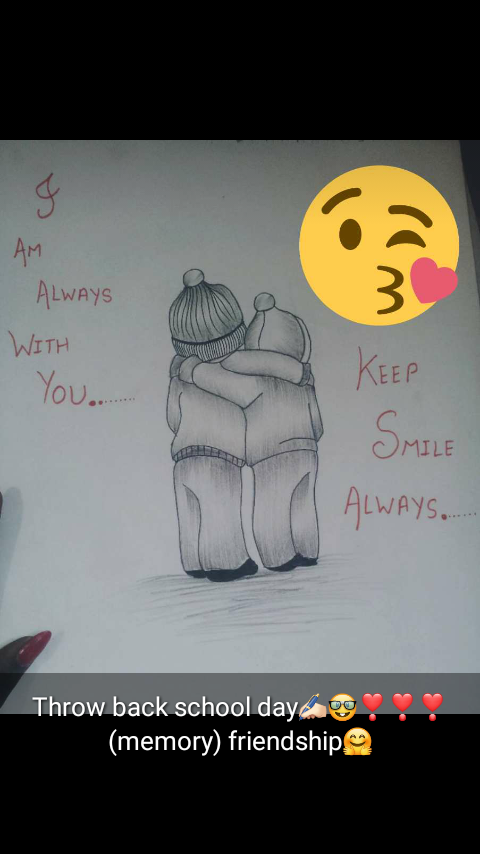 I
AM
ALWAYS
WITH
YOU..........
KEEP
SMILE
ALWAYS.......
Throw back school day✍🏻🤓❣️❣️❣️
(memory) friendship🤗